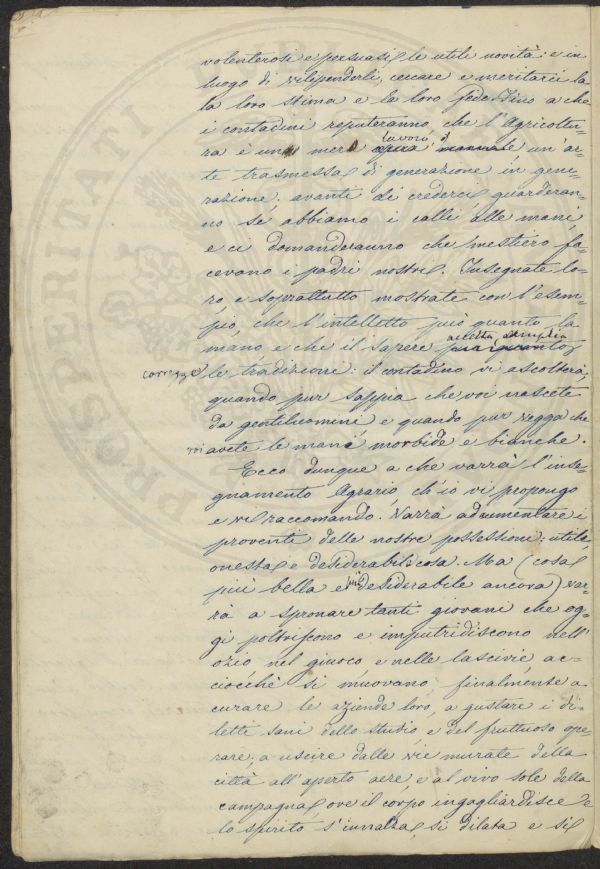 volenterosi e persuasi le utili novità: e in
luogo di vilipenderli, cercare e meritarci la
la loro stima e la loro fede. Fino a che
i contadini reputeranno che l'Agricoltu-
lavoro
ra è un mero opera manuale un ar-
te trasmessa di generazione in gene-
razione: avanti di crederci guarderan-
no se abbiamo i calli alle mani,
e ci domanderanno che mestiero fa-
cevano i padri nostri. Insegnate lo-
ro, e soprattutto mostrate con l'esem-
pio, che l'intelletto può quanto la
accetta, ed amplia
mano e che il sapere
corregge le tradizioni: il contadino vi ascolterà,
quando pur sappia che voi nasceste
da gentiluomini e quando pur vegga che
voi avete le mani morbide e bianche.
Ecco dunque a che varrà l'inse-
gnamento Agrario, ch'io vi propongo
e vi raccomando. Varrà ad aumentare i
proventi delle nostre possessioni: utile
onesta e desiderabil cosa. Ma (cosa
più bella e più desiderabile ancora) var-
rà a spronare tanti giovani che og-
gi poltriscono e imputridiscono nell'
ozio nel giuoco e nelle lascivie, ac-
ciocché si muovano, finalmente a
curare le aziende loro, a gustare i di-
letti sani dello studio e del fruttuoso ope-
rare, a uscire dalle vie murate della
città all'aperto aere, e al vivo sole della
campagna ove il corpo ingagliardisce e
lo spirito s'innalza, si dilata e si
PROSPERITATI